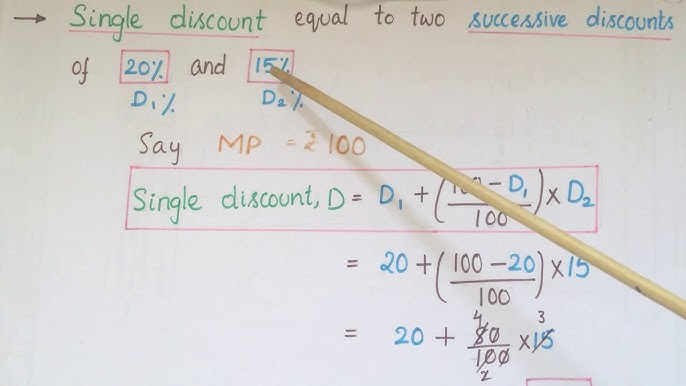 → Single discount equal to two successive discounts
of 20% and 15%
D₁% D₂%
Say MP = ₹100
Single discount, D = D₁ + (100 - D₁/100) × D₂
= 20 + (100 - 20/100) × 15
= 20 + 80/100 × 15
4 3
2